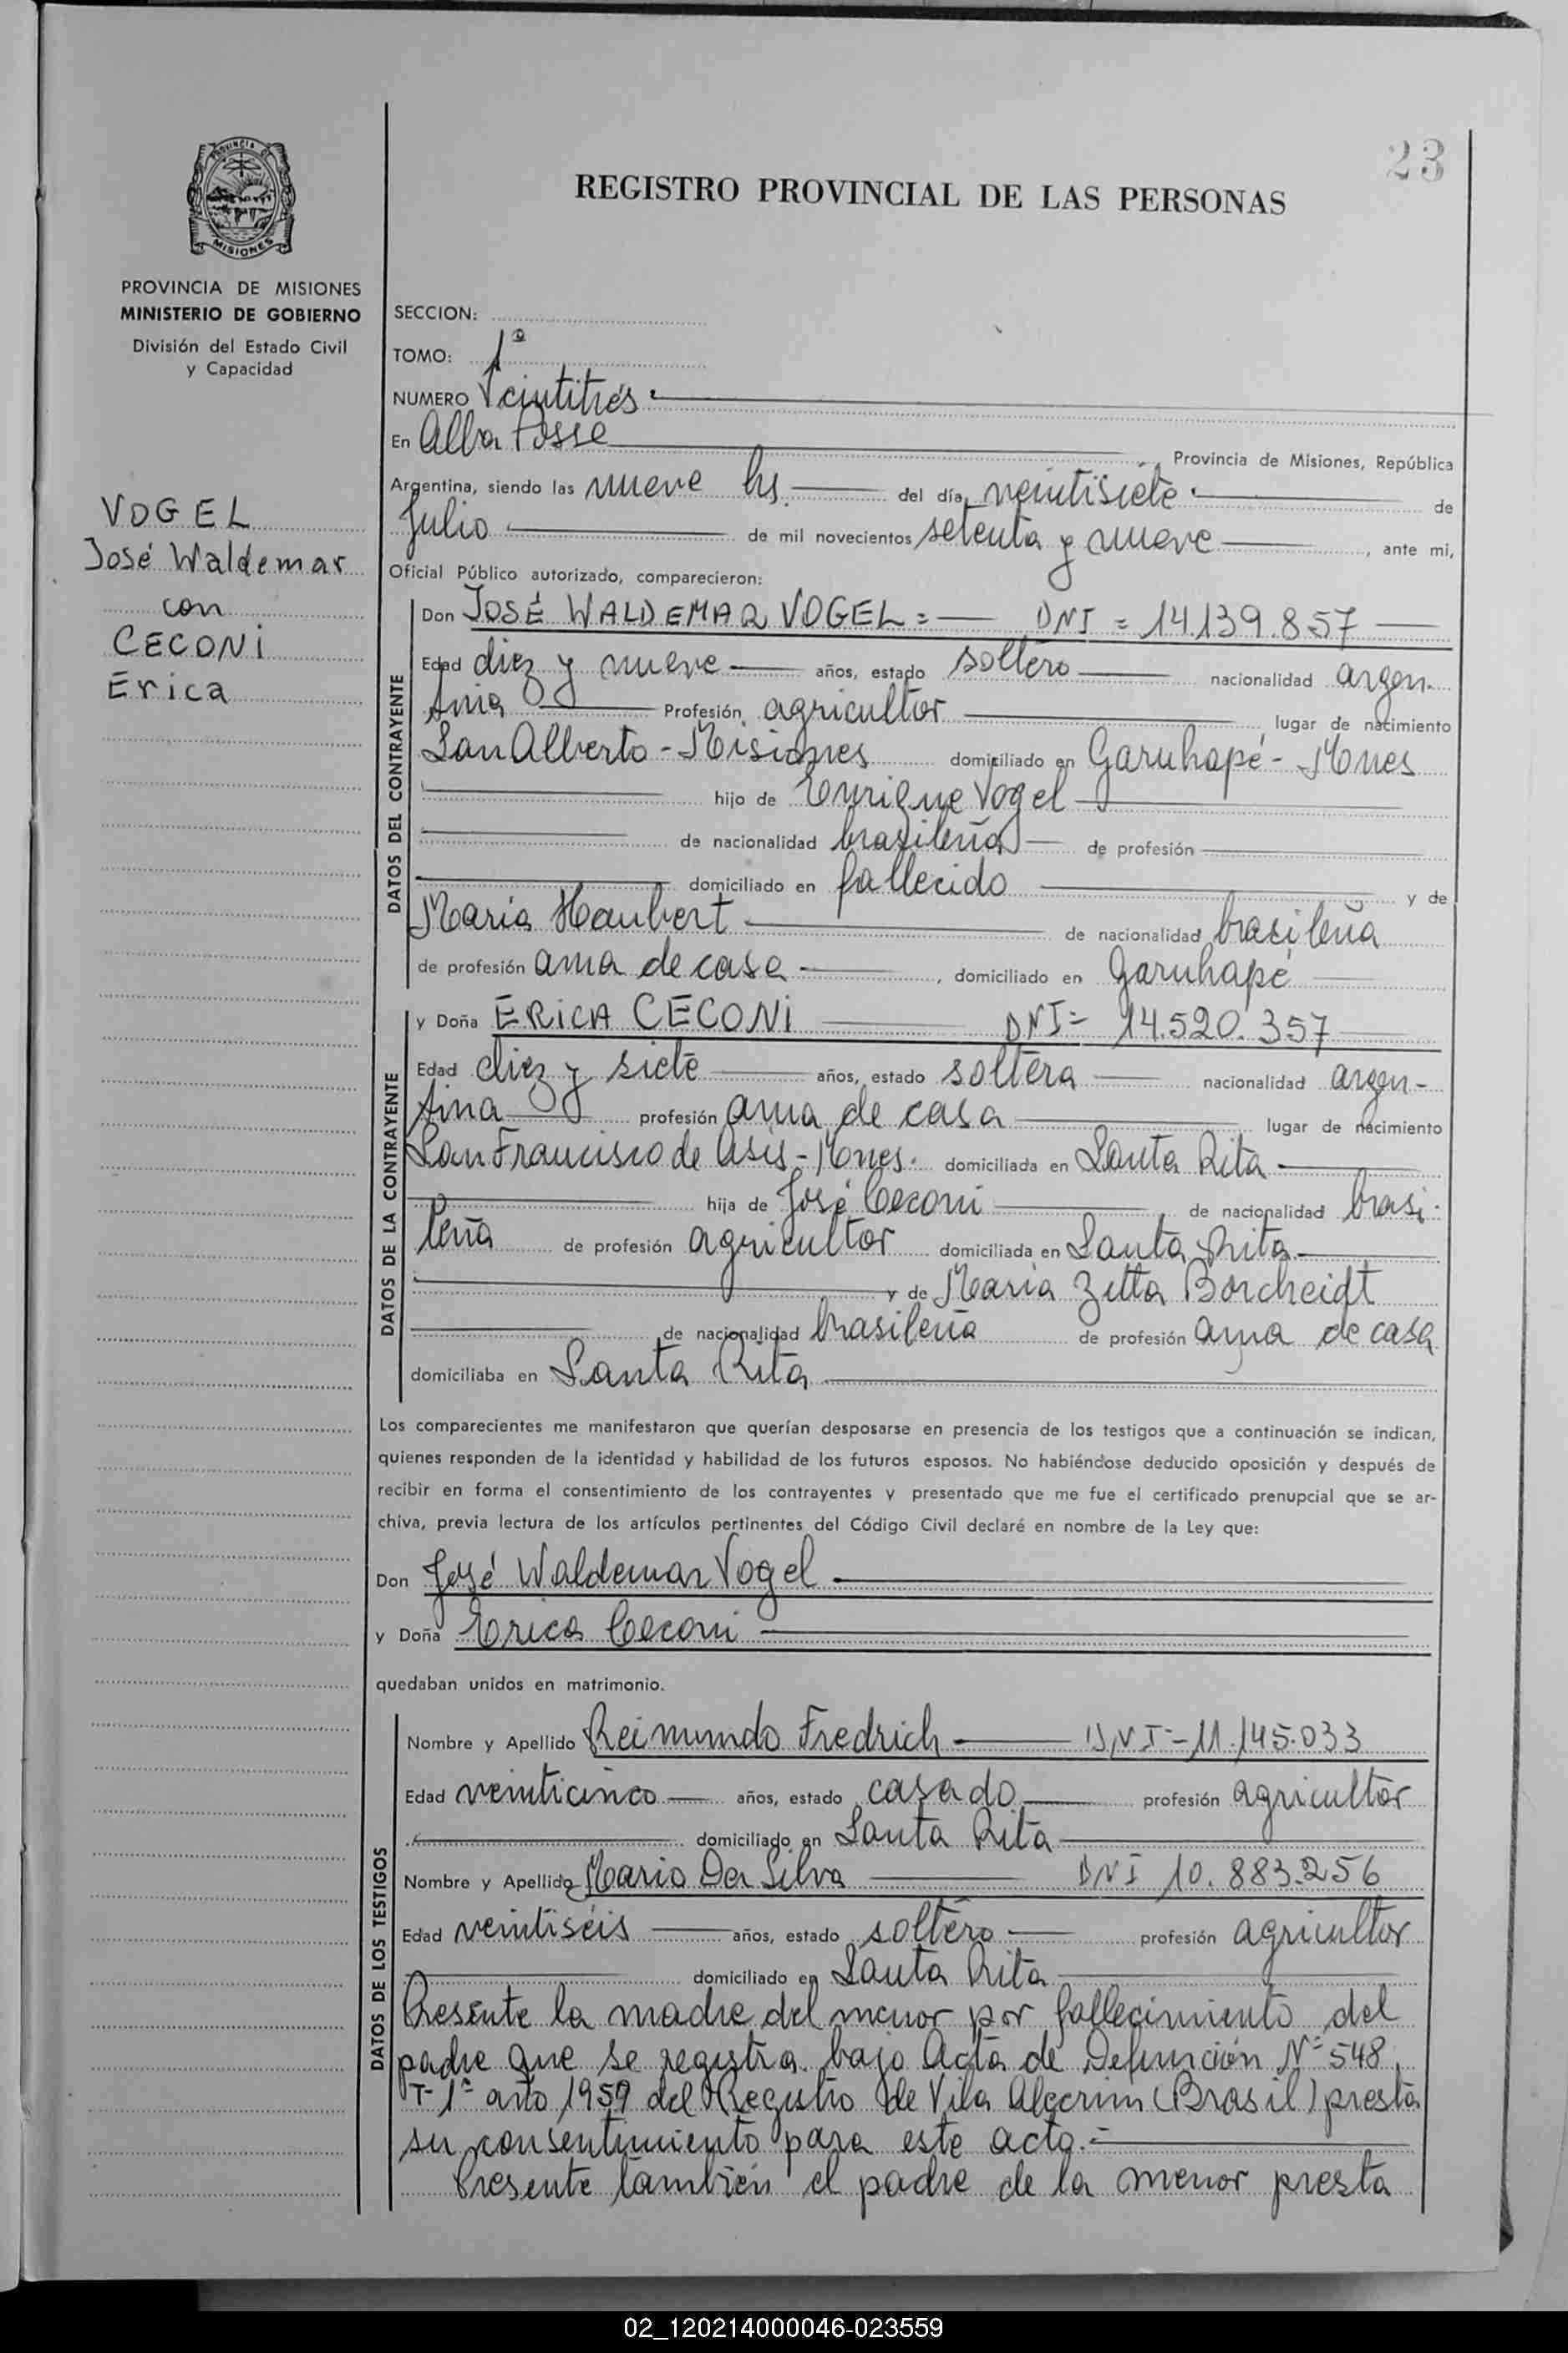 23
REGISTRO PROVINCIAL DE LAS PERSONAS
PROVINCIA DE
MISIONES
PROVINCIA DE MISIONES
MINISTERIO DE GOBIERNO
División del Estado Civil
y Capacidad
VOGEL
José Waldemar
con
CECONI
Erica
SECCION:
TOMO: 1º
NUMERO Veintitrés
En Alba Posse Provincia de Misiones, República
Argentina, siendo las nueve hs. del día veintisiete de
Julio de mil novecientos setenta y nueve, ante mi,
Oficial Público autorizado, comparecieron:
DATOS DEL CONTRAYENTE
Don JOSÉ WALDEMAR VOGEL = DNI = 14.139.857
Edad diez y nueve años, estado soltero nacionalidad argen-
tina Profesión agricultor lugar de nacimiento
San Alberto - Misiones domiciliado en Garuhapé - Mnes
hijo de Enrique Vogel
de nacionalidad brasileña de profesión
domiciliado en fallecido y de
Maria Haubert de nacionalidad brasileña
de profesión ama de casa, domiciliado en Garuhapé
DATOS DE LA CONTRAYENTE
y Doña ERICA CECONI DNI = 14.520.357
Edad diez y siete años, estado soltera nacionalidad argen-
tina profesión ama de casa lugar de nacimiento
San Francisco de Asis - Mnes. domiciliada en Santa Rita
hija de José Ceconi de nacionalidad brasi-
leña de profesión agricultor domiciliada en Santa Rita
y de Maria Zitta Borcheidt
de nacionalidad brasileña de profesión ama de casa
domiciliaba en Santa Rita
Los comparecientes me manifestaron que querían desposarse en presencia de los testigos que a continuación se indican,
quienes responden de la identidad y habilidad de los futuros esposos. No habiéndose deducido oposición y después de
recibir en forma el consentimiento de los contrayentes y presentado que me fue el certificado prenupcial que se ar-
chiva, previa lectura de los artículos pertinentes del Código Civil declaré en nombre de la Ley que:
Don José Waldemar Vogel
y Doña Erica Ceconi
quedaban unidos en matrimonio.
DATOS DE LOS TESTIGOS
Nombre y Apellido Reimundo Fredrich DNI = 11.145.033
Edad veinticinco años, estado casado profesión agricultor
domiciliado en Santa Rita
Nombre y Apellido Mario Da Silva DNI 10.883.256
Edad veintiséis años, estado soltero profesión agricultor
domiciliado en Santa Rita
Presente la madre del menor por fallecimiento del
padre que se registra bajo Acta de Defunción Nº 548,
T- 1º año 1959 del Registro de Vila Alecrim (Brasil) presta
su consentimiento para este acto.=
Presente también el padre de la menor presta
02_120214000046-023559